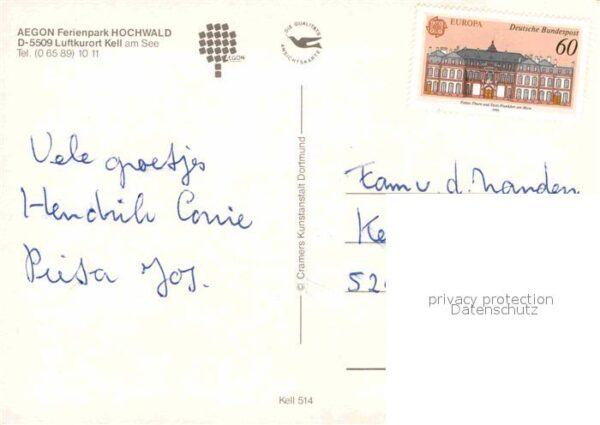 AEGON Ferienpark HOCHWALD
D-5509 Luftkurort Kell am See
Tel. (0 65 89) 10 11
AEGON
DIE QUALITÄTS
ANSICHTSKARTE
EUROPA
Deutsche Bundespost
60
Palais Thurn und Taxis Frankfurt am Main
1990
Vele groetjes
Hendrik Corrie
Jos.
© Cramers Kunstanstalt Dortmund
Fam v. d.
Ke
52
privacy protection
Datenschutz
Kell 514